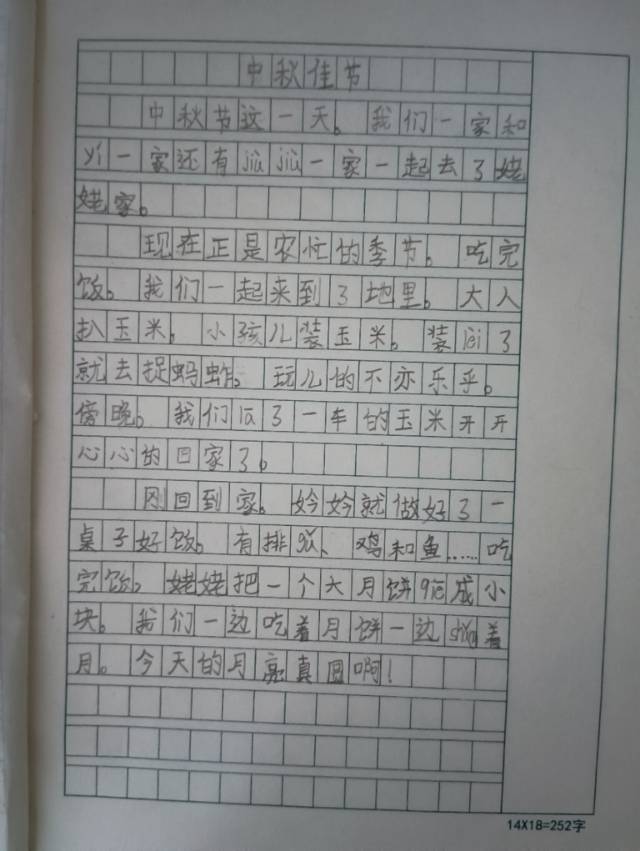 中秋佳节
中秋节这一天。我们一家和
yí一家还有jiù jiù一家一起去了姥
姥家。
现在正是农忙的季节。吃完
饭。我们一起来到了地里。大人
扒玉米。小孩儿装玉米。装lèi了
就去捉蚂蚱。玩儿的不亦乐乎。
傍晚。我们lā了一车的玉米开开
心心的回家了。
回到家。妗妗就做好了一
桌子好饭。有排gǔ、鸡和鱼……吃
完饭。姥姥把一个大月饼qiē成小
块。我们一边吃着月饼一边shǎng着
月。今天的月亮真圆啊!
14X18=252字